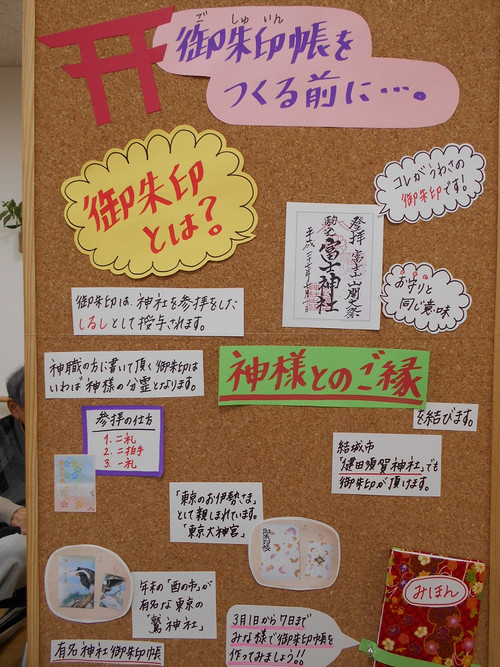 ご しゅ いん
御朱印帳を
つくる前に…。
御朱印
とは?
コレがうわさの
御朱印です!
登拝 富士山開大祭
駒込 富士神社
お守りと
同じ意味
御朱印は、神社を参拝をした
しるしとして授与されます。
神職の方に書いて頂く御朱印は
いわば神様の分霊となります。
神様とのご縁
を結びます。
参拝の仕方
1. 二礼
2. 二拍手
3. 一礼
結城市
「健田須賀神社」でも
御朱印が頂けます。
「東京のお伊勢さま」
として親しまれています。
「東京大神宮」
御朱印帳
年末の「酉の市」が
有名な東京の
「鷲神社」
有名神社御朱印帳
みほん
3月1日から7日まで
みな様で御朱印帳を
作ってみましょう!!